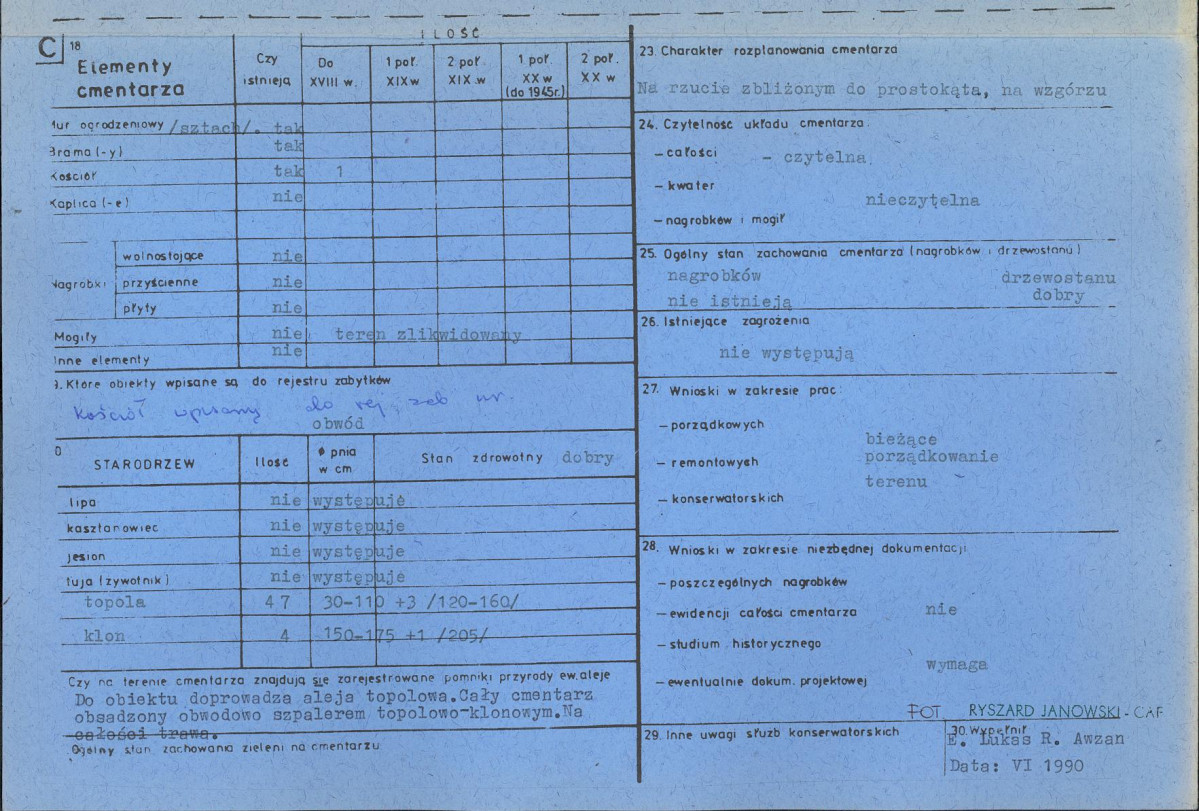 C 18
Elementy
cmentarza
Czy
istnieją
ILOŚĆ
Do
XVIII w.
1 poł.
XIX w
2 poł.
XIX w
1 poł.
XX w
(do 1945r.)
2 poł.
XX w
Mur ogrodzeniowy /sztach/. tak
Brama (-y) tak
Kościół tak 1
Kaplica (-e) nie
Nagrobki
wolnostojące nie
przyścienne nie
płyty nie
Mogiły nie teren zlikwidowany
Inne elementy nie
9. Które obiekty wpisane są do rejestru zabytków
Kościół wpisany do rej. zab nr.
obwód
0
STARODRZEW Ilość ø pnia
w cm Stan zdrowotny dobry
lipa nie występuje
kasztanowiec nie występuje
jesion nie występuje
tuja (żywotnik) nie występuje
topola 47 30-110 +3 /120-160/
klon 4 150-175 +1 /205/
Czy na terenie cmentarza znajdują się zarejestrowane pomniki przyrody ew. aleje
Do obiektu doprowadza aleja topolowa.Cały cmentarz
obsadzony obwodowo szpalerem topolowo-klonowym.Na
całości trawa.
Ogólny stan zachowania zieleni na cmentarzu
23. Charakter rozplanowania cmentarza
Na rzucie zbliżonym do prostokąta, na wzgórzu
24. Czytelność układu cmentarza:
– całości - czytelna
– kwater
nieczytelna
– nagrobków i mogił
25. Ogólny stan zachowania cmentarza (nagrobków i drzewostanu)
nagrobków drzewostanu
nie istnieją dobry
26. Istniejące zagrożenia
nie występują
27. Wnioski w zakresie prac:
– porządkowych
bieżące
porządkowanie
– remontowych
terenu
– konserwatorskich
28. Wnioski w zakresie niezbędnej dokumentacji
– poszczególnych nagrobków
– ewidencji całości cmentarza nie
– studium historycznego
wymaga
– ewentualnie dokum. projektowej
FOT RYSZARD JANOWSKI - CAF
29. Inne uwagi służb konserwatorskich
30. Wypełnił
E. Lukas R. Awzan
Data: VI 1990